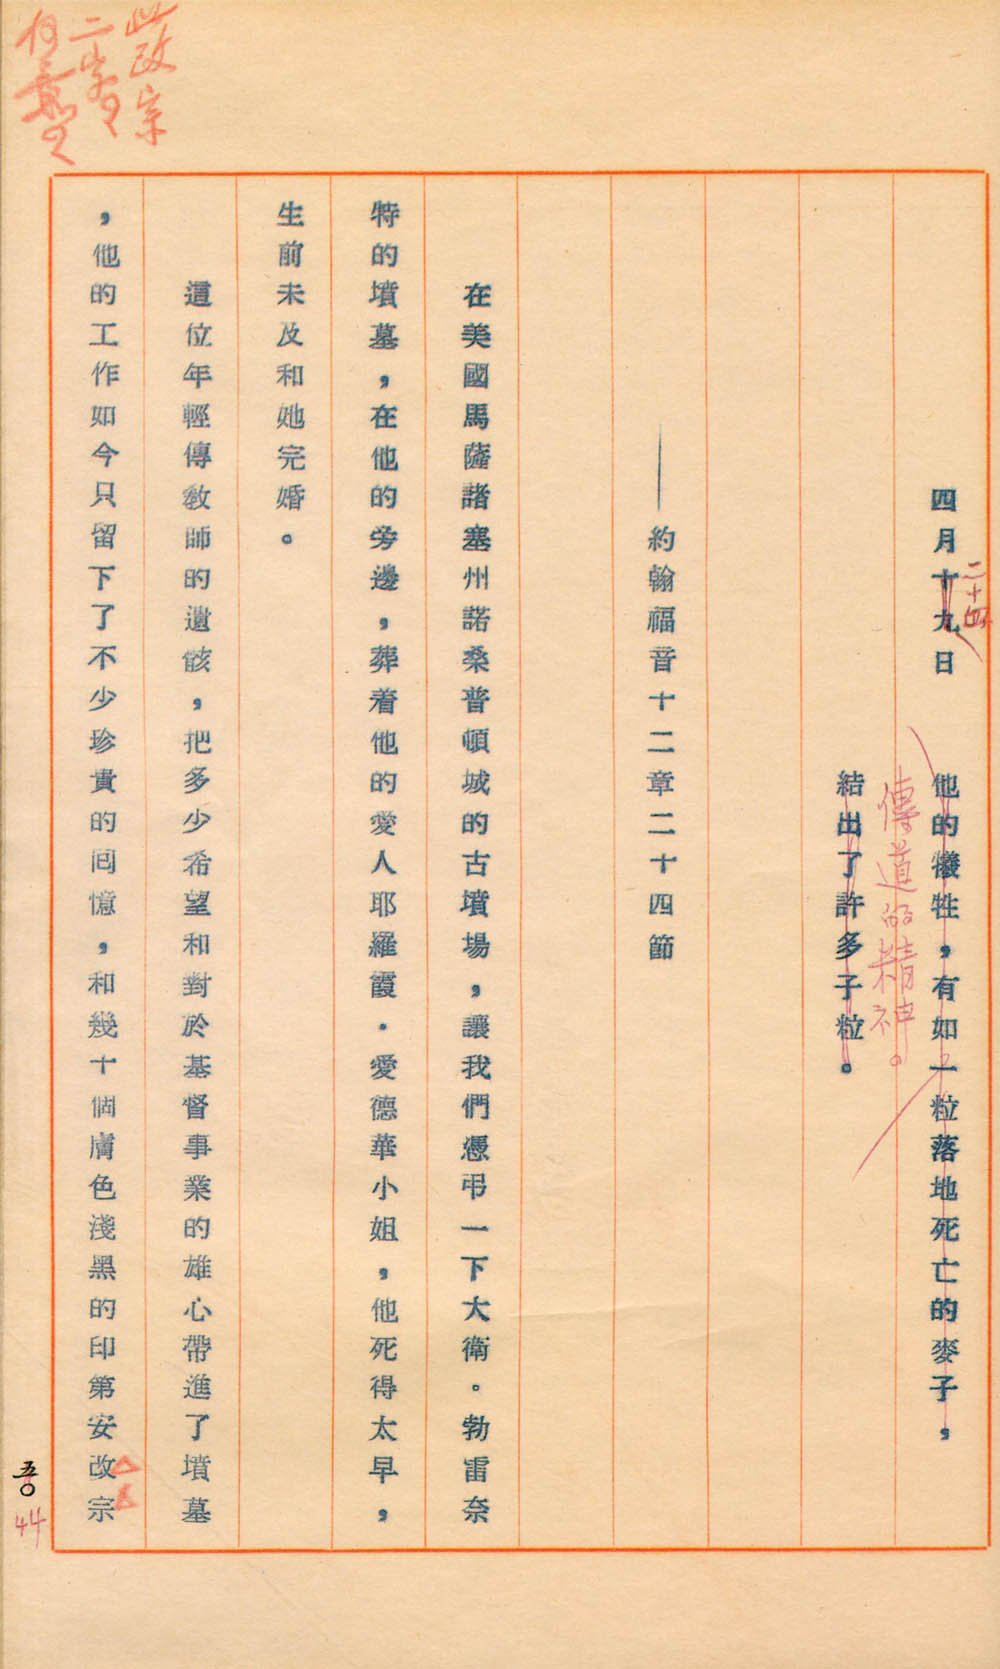 此改宗
二字是
何意思
四月十九日
二十四
他的犧牲，有如一粒落地死亡的麥子，
傳道的精神。
結出了許多子粒。
——約翰福音十二章二十四節
在美國馬薩諸塞州諾桑普頓城的古墳場，讓我們憑弔一下大衛。勃雷奈
特的墳墓，在他的旁邊，葬着他的愛人耶羅霞．愛德華小姐，他死得太早，
生前未及和她完婚。
這位年輕傳教師的遺骸，把多少希望和對於基督事業的雄心帶進了墳墓
，他的工作如今只留下了不少珍貴的回憶，和幾十個膚色淺黑的印第安改宗
五〇
44